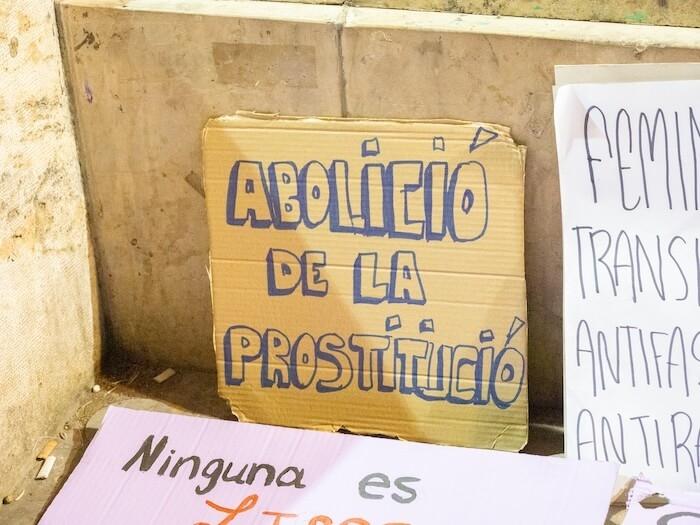 ABOLICIÓ
DE LA
PROSTITUCIÓ
Ninguna es
FEMIN
TRANSI
ANTIFAS
ANTIRA